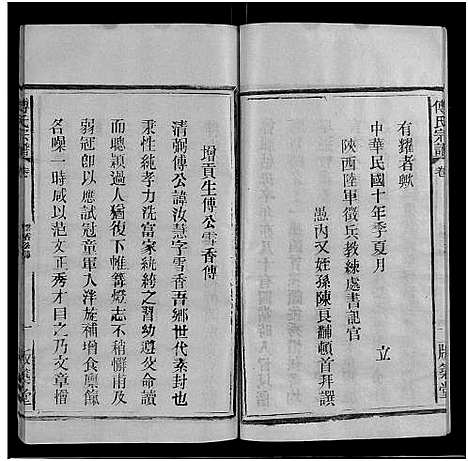 傅氏宗譜
卷
版築堂
有耀者歟
中華民國十年季夏月
陝西陸軍徵兵教練處書記官
立
愚内又姪孫陳良輔頓首拜譔
增貢生傅公雪香傳
清弼傅公諱汝慧字雪香吾鄉世代素封也
秉性純孝力洗富家紈綺之習幼遵父命讀
而聰穎過人猶復下帷篝燈志不稍懈甫及
弱冠卽以應試冠童軍入泮旋補增食廩餼
名噪一時咸以范文正秀才目之乃文章揩
傅氏宗譜
卷
一
版築堂